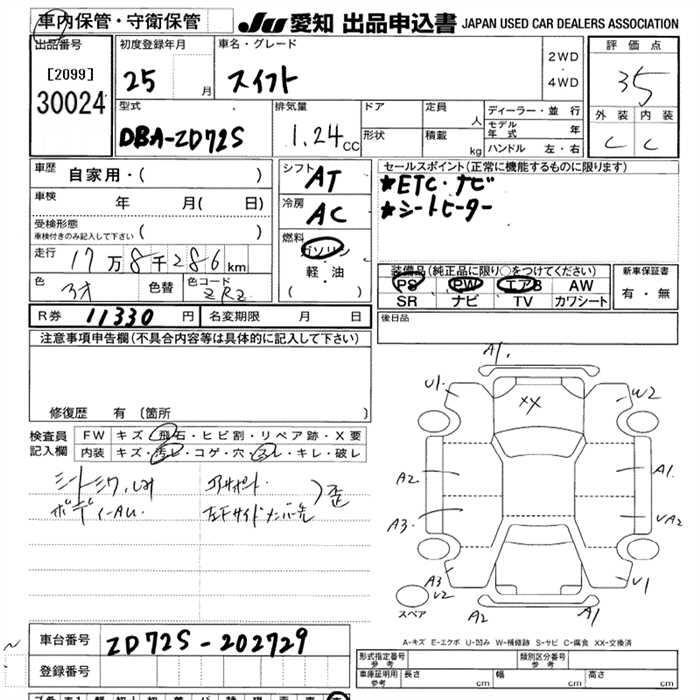 車内保管・守衛保管
JU 愛知 出品申込書 JAPAN USED CAR DEALERS ASSOCIATION
出品番号
[2099]
30024
初度登録年月
25 月
車名・グレード
スイフト
2WD
・
4WD
評価点
35
外装 内装
C C
型式
DBA-ZD72S
排気量
1.24 CC
ドア
形状
定員 人
積載 kg
ディーラー・並行
モデル年式 年
ハンドル 左・右
車歴
自家用・( )
車検 年 月( 日)
受検形態
車検付きのみ記入して下さい ( )
走行 17万8千286km
色 色替 色コード
ZRZ
シフト AT
冷房 AC
燃料
ガソリン
軽・油
( )
セールスポイント(正常に機能するものに限ります)
★ETC・ナビ
★シートヒーター
装備品(純正品に限り○をつけてください)
PS PW エアB AW
SR ナビ TV カワシート
新車保証書
有・無
R券 11330 円 名変期限 月 日
後日品
注意事項申告欄(不具合内容等は具体的に記入して下さい)
修復歴 有 (箇所
検査員
記入欄
FW キズ・飛石・ヒビ割・リペア跡・X要
内装 キズ・汚レ・コゲ・穴・スレ・キレ・破レ
左Fサイドメンバー先
歪
A1
U1
XX
W2
A2
A1
A3
UA2
A3
U2
U1
スペア
A2
A1
A-キズ E-エクボ U-凹み W-補修跡 S-サビ C-腐食 XX-交換済
車台番号 ZD72S-202729
登録番号
形式指定番号
参考
類別区分番号
参考
車庫証明用
参考
長さ cm 幅 cm 高さ cm